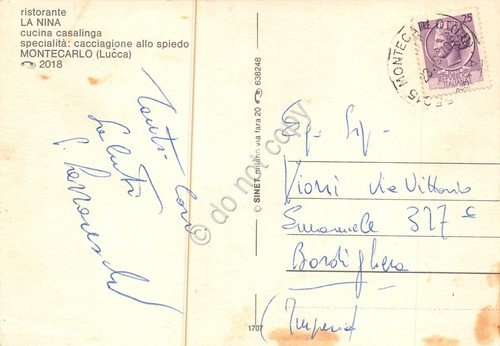 ristorante
LA NINA
cucina casalinga
specialità: cacciagione allo spiedo
MONTECARLO (Lucca)
2018
Tanti Cari
Saluti
© SINET milano via fara 20 638248
do not copy
1707
25
55015 MONTECARLO
Vioni Via Vittorio
Emanuele 327 c
Bordighera
(Imperia)